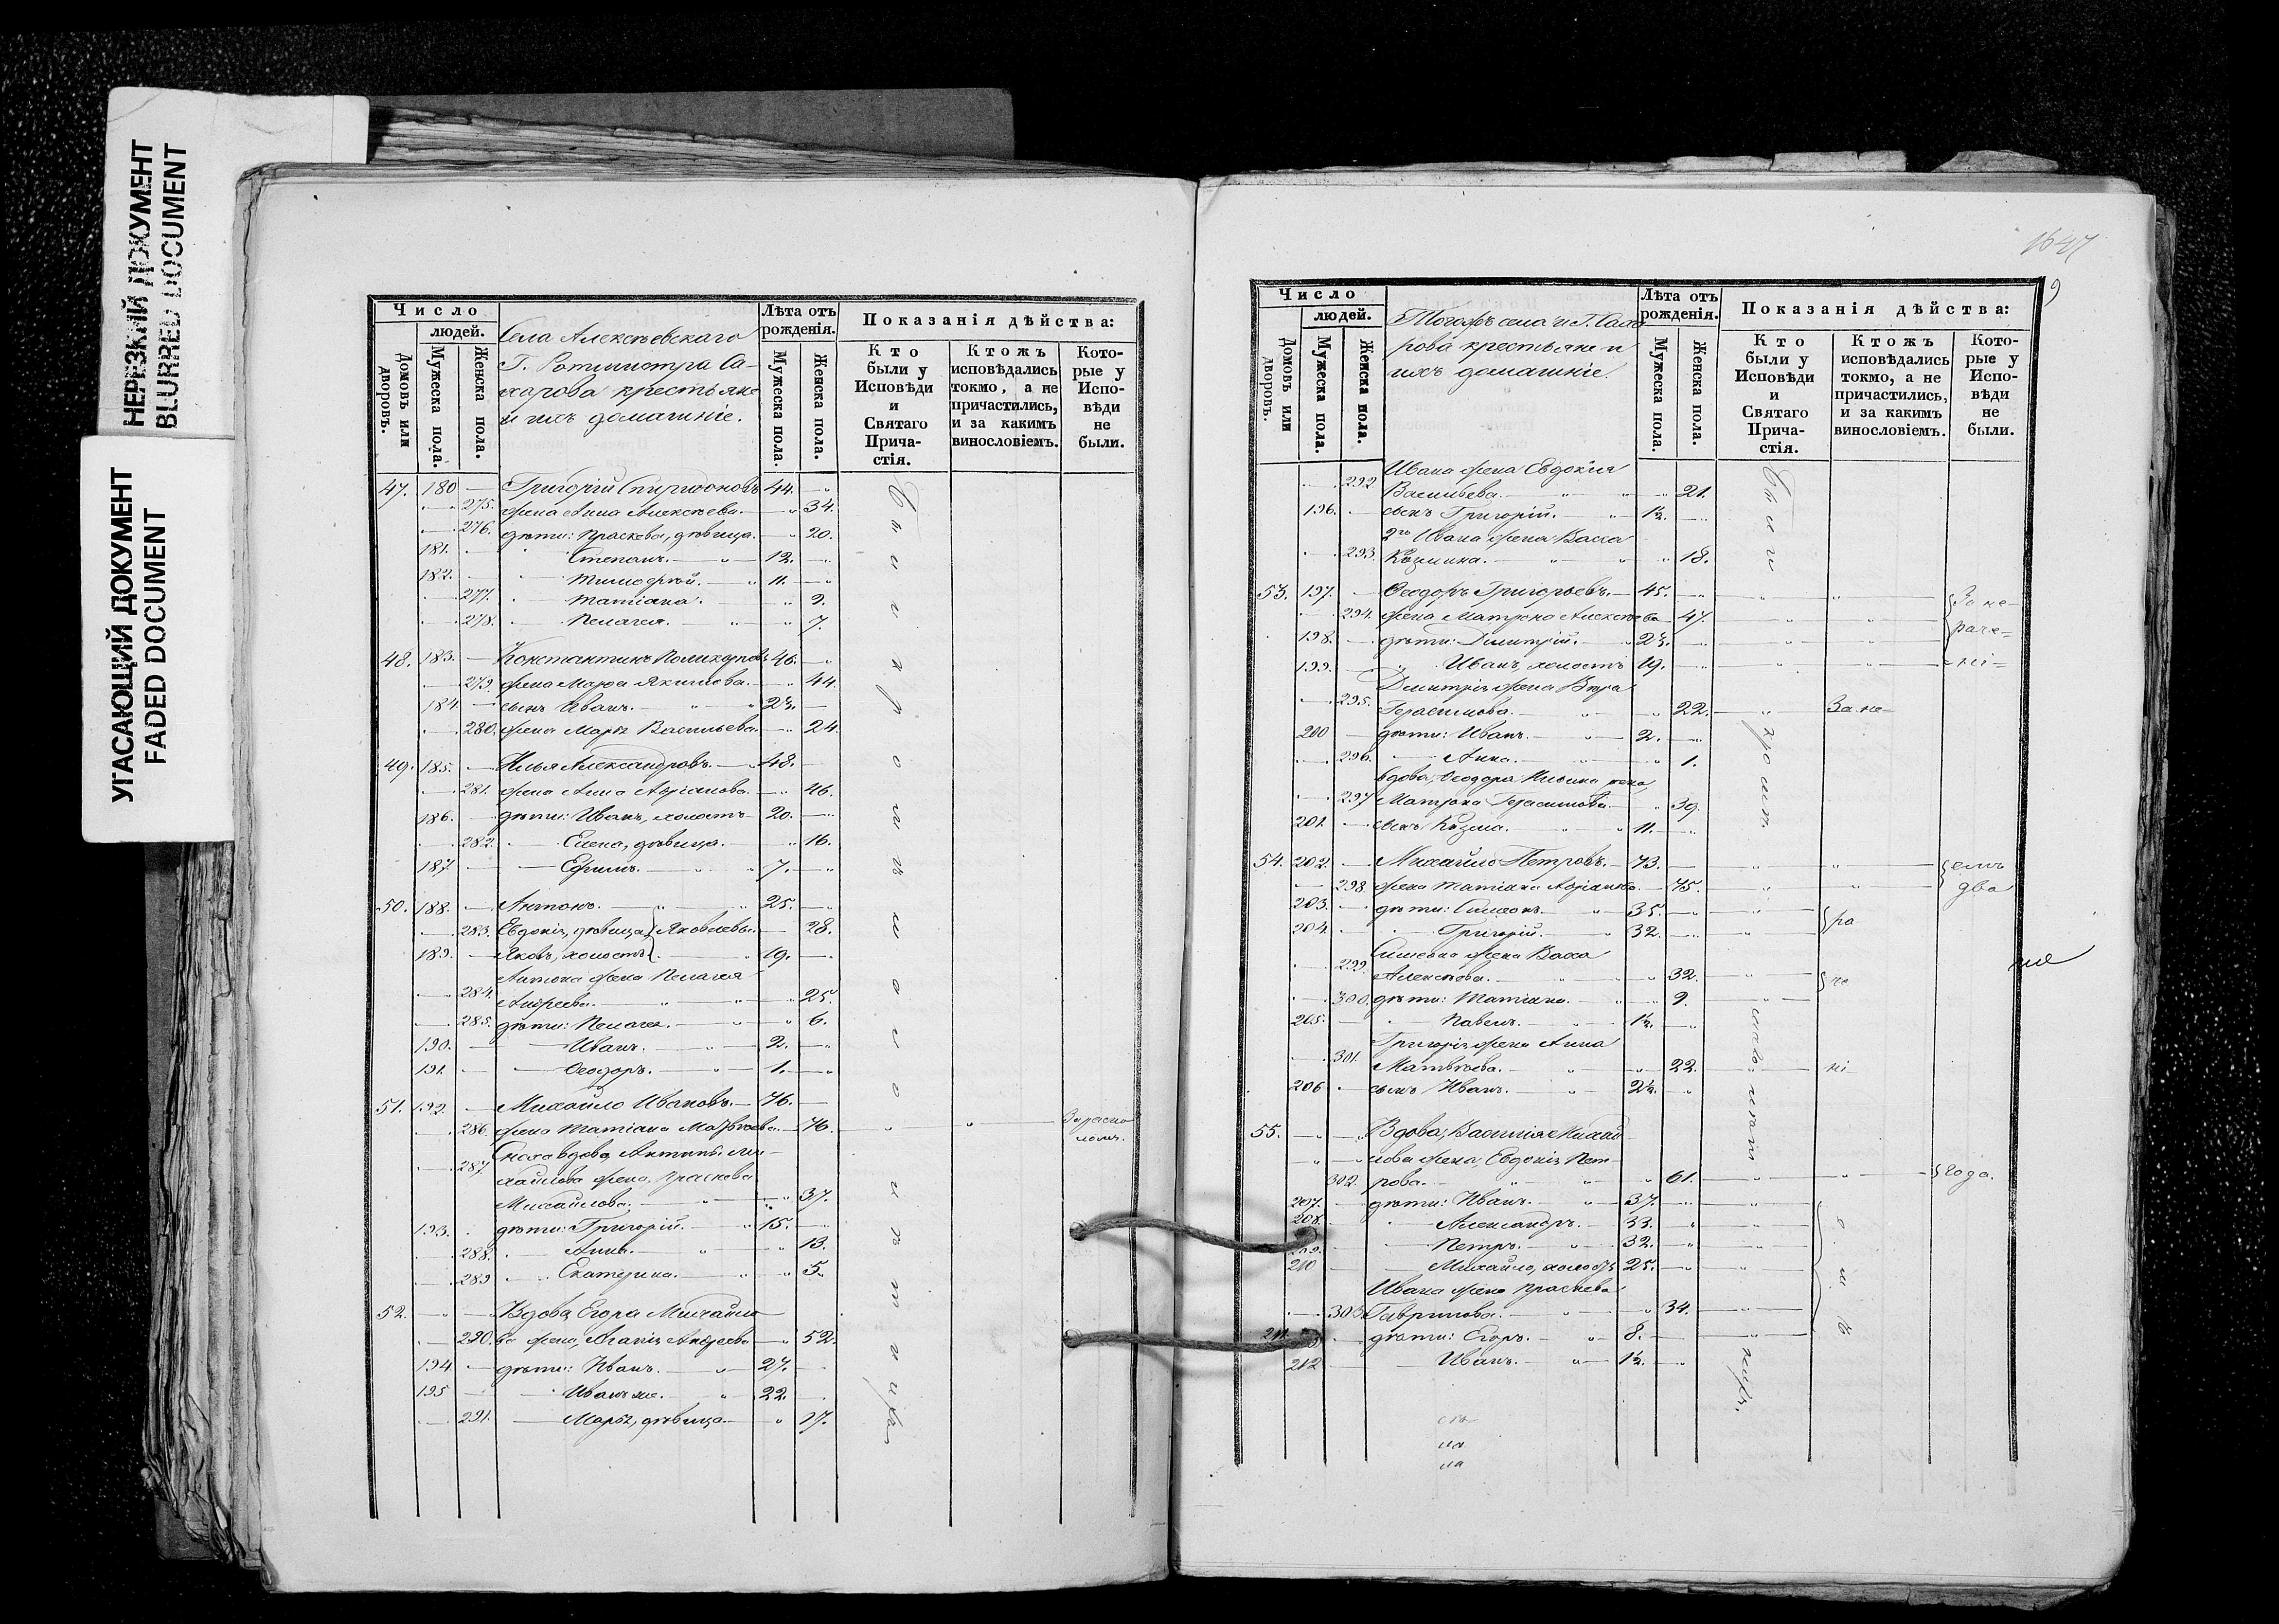 НЕРЕЗКИЙ ДОКУМЕНТ
BLURRED DOCUMENT
УГАСАЮЩИЙ ДОКУМЕНТ
FADED DOCUMENT
Число
людей.
Домовъ или дворовъ.
Мужеска пола.
Женска пола.
Села Алексѣевскаго
Г. Ротмистра Са-
харова крестьяне
и ихъ домашніе.
Лѣта отъ рожденія.
Мужеска пола.
Женска пола.
Показанія дѣйства:
Кто были у Исповѣди и Святаго Прича-стія.
Ктожъ исповѣдались токмо, а не причастились, и за какимъ винословіемъ.
Кото-рые у Испо-вѣди не были.
47. 180 Григорій Спиридоновъ 44.
275. жена Анна Алексѣева. 34.
276. дѣти: Праскева, дѣвица. 20.
181. Степанъ. 12.
182. Тимоѳей. 11.
277. Татіана. 9.
278. Пелагея. 7.
48. 183. Константинъ Поликарповъ 46.
279. жена Марѳа Якимова. 44.
184. сынъ Иванъ. 23.
280. жена Марья Васильева. 24.
49. 185. Илья Александровъ. 48.
281. жена Анна Адріанова. 46.
186. дѣти: Иванъ, холостъ 20.
282. Елена, дѣвица. 16.
187. Ефимъ. 7.
50. 188. Антонъ. 25.
283. Евдокія, дѣвица Яковлевы. 28.
189. Яковъ, холостъ 19.
Антона жена Пелагея
284. Андреева. 25.
285. дѣти: Пелагея. 6.
190. Иванъ. 2.
191. Ѳеодоръ. 1.
51. 192. Михайло Ивановъ. 76.
286. жена Татіана Матвѣева. 76.
287. Сноха вдова, Антипы Ми-
хайлова жена, Праскева
Михайлова. 37.
193. дѣти: Григорій. 15.
288. Анна. 13.
289 Екатерина. 5.
52. Вдова, Егора Михайло-
290. ва жена, Агафія Андреева 52.
194 дѣти: Иванъ. 27.
195 Иванъ же. 22.
291. Марья, дѣвица. 17.
1647
9
Число
людей.
Домовъ или дворовъ.
Мужеска пола.
Женска пола.
Тогожъ села и Г. Саха-
рова крестьяне и
ихъ домашніе.
Лѣта отъ рожденія.
Мужеска пола.
Женска пола.
Показанія дѣйства:
Кто были у Исповѣди и Святаго Прича-стія.
Ктожъ исповѣдались токмо, а не причастились, и за какимъ винословіемъ.
Кото-рые у Испо-вѣди не были.
Ивана жена Евдокія
292 Васильева. 21.
196. сынъ Григорій. 1½.
2го Ивана жена Васса
293. Козмина. 18.
53. 197. Ѳеодоръ Григорьевъ. 45. За не-
294. жена Матрона Алексѣева 47. раче-
198. дѣти: Димитрій. 23.
199. Иванъ, холостъ 19. ні-
Димитрія жена Вѣра
295. Герасимова. 22. За не-
200 дѣти: Иванъ. 2.
296. Анна. 1.
вдова, Ѳеодора Ильина жена,
297 Матрона Герасимова. 39.
201. сынъ Козма. 11.
54. 202. Михайло Петровъ. 73. емъ
298. жена Татіана Адріанова. 75. два
203. дѣти: Симеонъ. 35. ра
204. Григорій. 32.
Симеона жена Васса
299 Алексѣева. 32. че
300. дѣти: Татіана. 9.
205. Павелъ. 1½.
Григорія жена Анна
301. Матвѣева. 22. ні
206 сынъ Иванъ. 2½.
55. Вдова, Василія Михай-
лова жена, Евдокія Пет-
302. рова. 61. года.
207. дѣти: Иванъ. 37.
208. Александръ. 33.
209. Петръ. 32.
210 Михайло, холостъ 25.
Ивана жена Праскева
303 Гаврилова. 34.
211. дѣти: Егоръ. 8.
212 Иванъ. 1½.